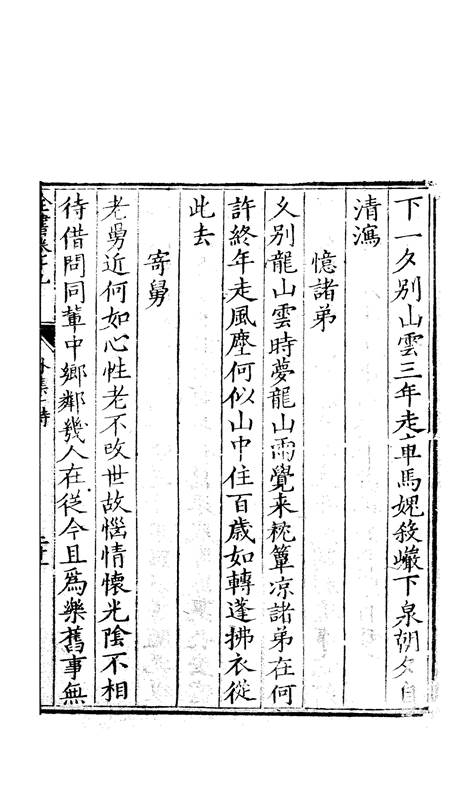 下一夕別山雲三年走車馬媿殺巖下泉朝夕自
清瀉
憶諸弟
久別龍山雲時夢龍山雨覺来枕簟凉諸弟在何
許終年走風塵何似山中住百歳如轉蓬拂衣從
此去
寄舅
老舅近何如心性老不改世故惱情懷光隂不相
待借問同輩中鄉鄰幾人在從今且為樂舊事無
全書卷十九
外集一 詩